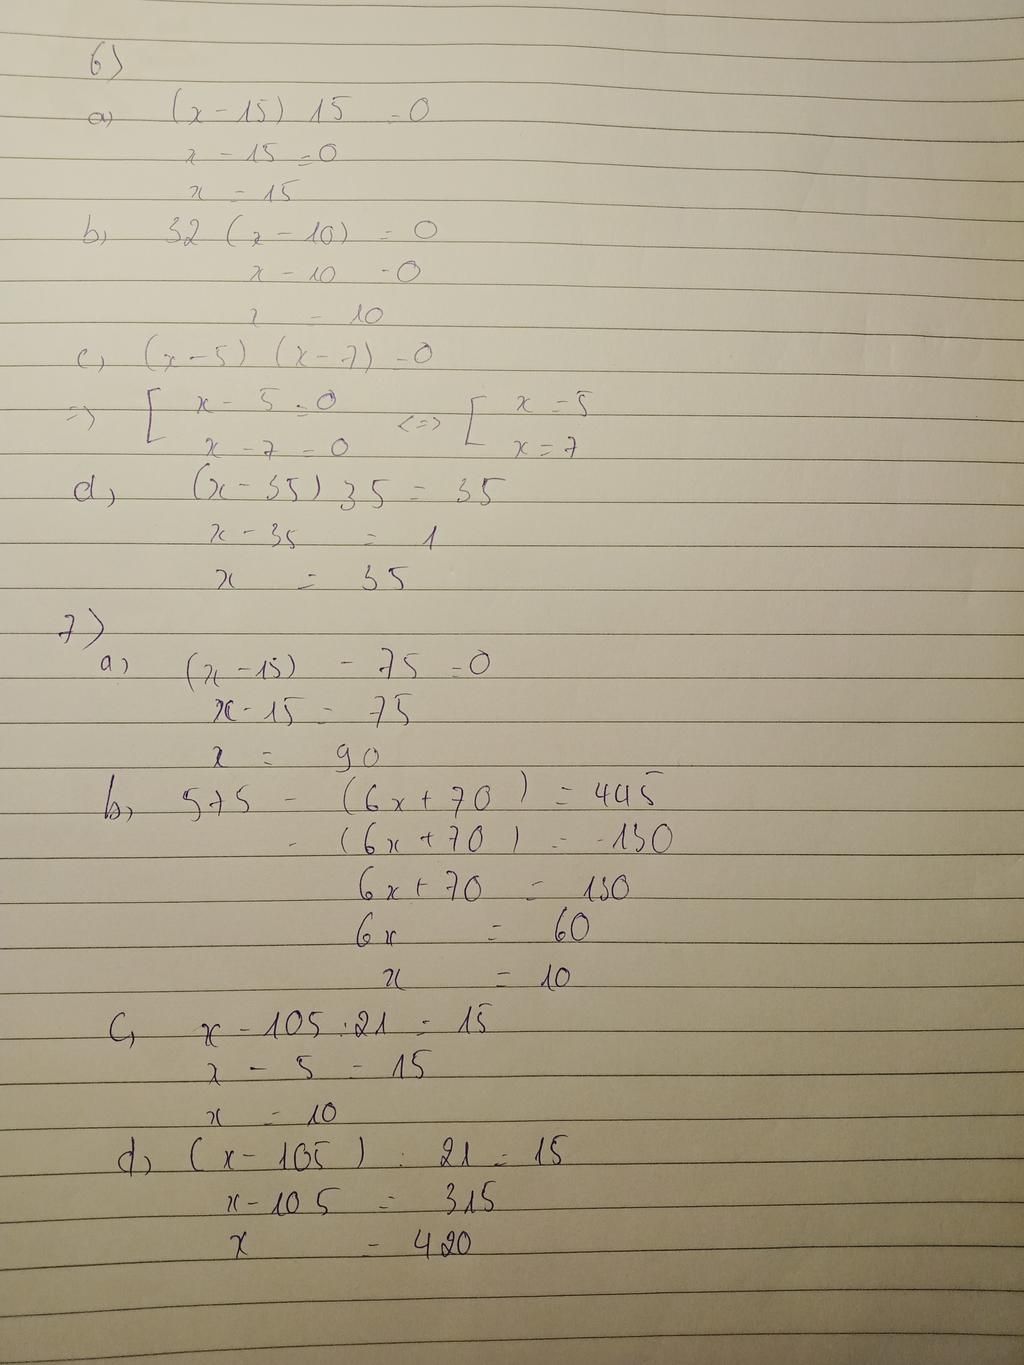 6)
a) (x - 15) 15 = 0
x - 15 = 0
x = 15
b, 32 (x - 10) = 0
x - 10 = 0
x = 10
c, (x - 5) (x - 7) = 0
=> [ x - 5 = 0 <=> [ x = 5
x - 7 = 0 x = 7
d, (x - 35) 35 = 35
x - 35 = 1
x = 35
7)
a) (x - 15) - 75 = 0
x - 15 = 75
x = 90
b, 575 - (6x + 70) = 445
- (6x + 70) = -130
6x + 70 = 130
6x = 60
x = 10
c, x - 105 : 21 = 15
x - 5 = 15
x = 10
d, (x - 105) : 21 = 15
x - 105 = 315
x = 420